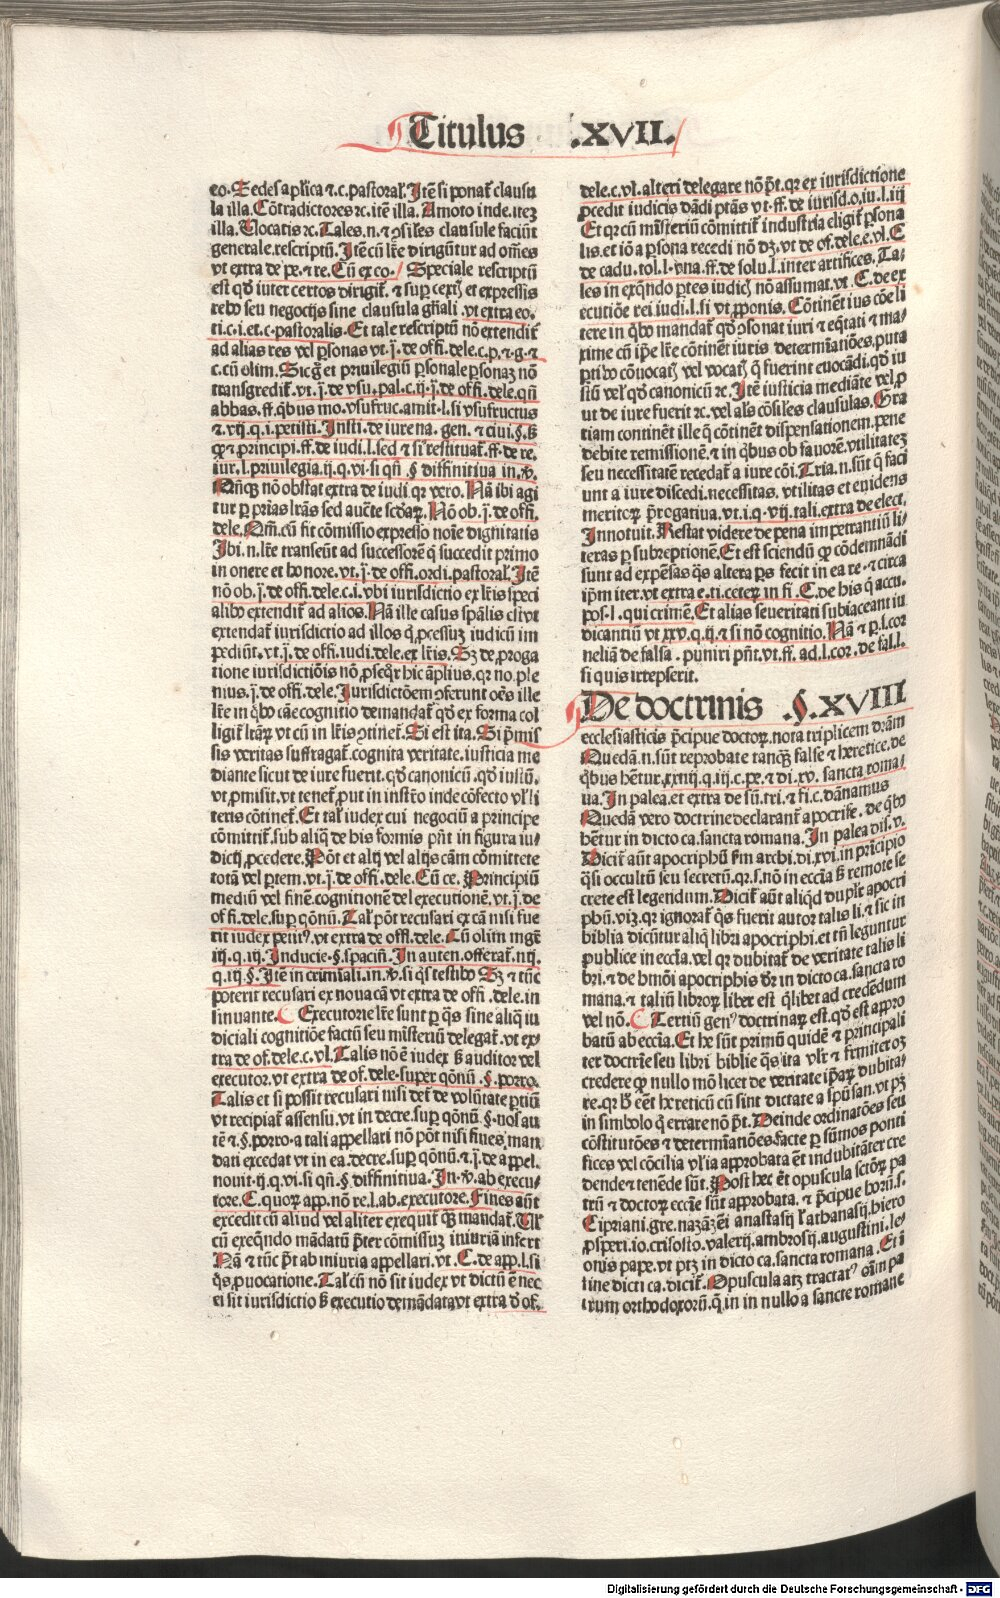 Titulus .XVII.
eo. Sedes aplica ⁊.c. pastoral̄. Itē si ponat̄ clausu
la illa. Cōtradictores ⁊c. itē illa. Amoto inde. itez
illa. Vocatis ⁊c. Tales .n. ⁊ ꝯsiles clausule faciūt
generale. rescriptū. Itē cū lr̄e dirigūtur ad om̄es
vt extra de pe. ⁊ re. Cū ex eo. Speciale rescriptū
est qd̄ inter certos dirigit̄. ⁊ sup certꝭ et expressis
rebꝰ seu negocijs sine clausula gn̄ali .vt extra eo.
ti. c. i. et. c. pastoralis. Et tale rescriptū nō extendit̄
ad alias res vel ꝑsonas vt. j. de offi. dele. c. p. ⁊ g. ⁊
c. cū olim. Sic ⁊ et priuilegiū ꝑsonale ꝑsonaz nō
transgredit̄. vt. j. de vsu. pal. c. ij. j. de offi. dele. qm̄
abbas. ff. qbus mo. vsufruc. amit. l. si vsufructus
⁊. vij. q. i. petisti. Insti. de iure na. gen. ⁊ ciui. §. s;
ꝙ ⁊ principi. ff. de iudi. l. sed ⁊ si restituat̄. ff. de re.
iur. l. priuilegia. ij. q. vi. si qn̄ . § diffinitiua in. v̄.
nō obstat extra de iudi qr vero. Nā ibi agi
tur ꝑ pr̄ias lr̄as sed aucte scd̄aꝝ. Nō ob. j. de offi.
dele. Qm̄. cū fit cōmissio expresso noīe dignitatis
Ibi. n. lr̄e transeūt ad successorē q̄ succedit primo
in onere et honore. vt. j. de offi. ordi. pastoral̄. Itē
nō ob. j. de offi. dele. c. i. vbi iurisdictio ex lr̄is speci
alibꝰ extendit̄ ad alios. Nā ille casus spālis est vt
extendat̄ iurisdictio ad illos q̄ ꝓcessuz iudicū im
pediūt. vt. j. de offi. iudi. dele. ex lr̄is. Sz de ꝓroga
tione iurisdictiōis nō ꝓseqr hic āplius. qr no. ple
nius. j. de offi. dele. Iurisdictōem ꝯferunt oēs ille
lr̄e in qbꝰ cāe cognitio demandat̄ qd̄ ex forma col
ligit̄ lr̄aꝝ vt cū in lr̄is ꝯtinet̄. Si est ita. Si p̄mis
sis veritas suffragat̄. cognita veritate. iusticia me
diante sicut de iure fuerit. qd̄ canonicū. qd̄ iustū.
vt ꝓmisit. vt tenet̄. ꝓut in instr̄o inde cōfecto vl̄ li
teris cōtinet̄. Et tal̄ iudex cui negociū a principe
cōmittit̄. sub aliq̄ de his formis pn̄t in figura iu/
dicij ꝓcedere. Pōt et alij vel alijs cām cōmittere
totā vel ꝑtem. vt. j. de offi. dele. Cū ce. Principiū
mediū vel finē. cognitionē del executionē. vt. j. de
offi. dele. sup qōnū. Tal̄ pōt recusari ex cā nisi fue
rit iudex petitꝰ. vt extra de offi. dele. Cū olim mgr̄
iij. q. iij. Inducie. §. spaciū. In auten. offerat̄. iiij.
q. iij §. Itē in crimīali. in. v̄. si qs testibꝰ Sz ⁊ tūc
poterit recusari ex noua cā vt extra de offi. dele. in
sinuante. Executorie lr̄e sunt ꝑ qs sine aliq iu
diciali cognitiōe factū seu misteriū delegat̄. vt ex/
tra de of. dele. c. vl̄. Talis nō ē iudex s; auditor vel
executor. vt extra de of. dele. super qōnū. §. porro.
Talis et si possit recusari nisi det̄ de volūtate ꝑtiū
vt recipiat̄ assensu. vt in decre. sup qōnū §. nos au
tē ⁊ §. porro. a tali appellari nō pōt nisi fines man
dati excedat vt in ea. decre. sup qōnū. ⁊. j. de appel.
nouit. ij. q. vi. si qn̄. § diffinitiua. In. v̄. ab execu/
tore. C. quoꝝ app. nō re. l. ab. executore. Fines aūt
excedit cū aliud vel aliter exequit̄ q; mandat̄. Vl̄
cū exeq̄ndo mādatū p̄ter cōmissuz iniuriā infert
Nā ⁊ tūc pr̄t ab iniuria appellari. vt. C. de app. l. si
qs ꝓuocatione. Tal̄ cū nō sit iudex vt dictū ē nec
ei sit iurisdictio s; executio demādata. vt extra ð of.
dele. c. vl̄. alteri delegare nō pr̄t. qr ex iurisdictione
ꝓcedit iudicis dādi ptās vt. ff. de iurisd. o. iu. l. iij
Et qr cū misteriū cōmittit̄ industria eligit̄ ꝑsona
lis. et iō a ꝑsona recedi nō dz. vt de of. dele. c. vl̄. C
de cadu. tol. l. vna. ff. de solu. l. inter artifices. Ta/
les in exq̄ndo ꝑtes iudicꝭ nō assumat. vt. C. de ex
ecutiōe rei iudi. l. si vt ꝓponis. Cōtinēt ius cōe li
tere in qbꝰ mandat̄ qd̄ ꝯsonat iuri ⁊ eq̄tati ⁊ ma/
xime cū ip̄e lr̄e cōtinēt iuris determīatiōes, puta
ꝑtibꝰ cōuocatꝭ vel vocatꝭ q̄ fuerint euocādi. qd̄ iu
stū vel qd̄ canonicū ⁊c. Itē iusticia mediāte vel ꝓ
ut de iure fuerit ⁊c. vel als cōsiles clausulas. Gra
tiam continēt ille q̄ cōtinēt dispensationem. pene
debite remissionē. ⁊ in qbus ob fauorē. vtilitatez
seu necessitatē recedat̄ a iure cōi. Tria. n. sūt q̄ faci
unt a iure discedi. necessitas. vtilitas et euidens
meritoꝝ p̄rogatiua. vt. i. q. vij. tali. extra de elect.
Innotuit. Restat videre de pena impetrantiū li/
teras ꝑ subreptionē. Et est sciendū ꝙ cōdemnādi
sunt ad expēsas qs altera ꝑs fecit in ea re. ⁊ circa
ip̄m iter. vt extra e. ti. ceteꝝ in fi. C. de his q̄ accu.
pos. l. qui crimē. Et alias seueritati subiaceant iu
dicantiū vt xxv. q. ij. ⁊ si nō cognitio. Nā ⁊ ꝑ l. cor
neliā de falsa. puniri pn̄t. vt. ff. ad. l. cor. de fal. l.
si quis irrepserit.
De doctrinis .§. XVIII
ecclesiasticis p̄cipue doctoꝝ. nota triplicem dr̄am
Quedā. n. sūt reprobate tanqz false ⁊ heretice. de
qbus hētur. xxiiij. q. iij. c. pe. ⁊ di. xv. sancta roma/
na. In palea. et extra de sū. tri. ⁊ fi. c. dānamus
Quedā vero doctrine declarant̄ apocrife. de qbꝰ
hētur in dicto ca. sancta romana. In palea dis. v.
Dicit̄ aūt apocriphū s; archi. di. xvi. in prīcipio
q̄si occultū seu secretū. qr. s. nō in ecclīa s; remote se
crete est legendum. Dicit̄ aūt aliqd duplr̄ apocri
phū. viz. qr ignorat̄ qs fuerit autor talis li. ⁊ sic in
biblia dicūtur aliq̄ libri apocriphi. et tn̄ leguntur
publice in eccīa. vel qr dubitat̄ de veritate talis li
bri. ⁊ de hmōi apocriphis dr̄ in dicto ca. sancta ro
mana. ⁊ taliū libroꝝ liber est q̄libet ad credēdum
vel nō. Tertiū genꝰ doctrinaꝝ est. qd̄ est appro
batū ab eccīa. Et he sūt primū quidē ⁊ principali
ter doctrīe seu libri biblie qs ita vlr̄ ⁊ firmiter oz
credere ꝙ nullo mō licet de veritate ip̄aꝝ dubita/
re. qr h̄ eēt hereticū cū sint dictate a spūsan. vt pz
in simbolo q̄ errare nō pr̄t. Deinde ordinatōes seu
cōstitutōes ⁊ determīatiōes facte ꝑ sūmos ponti
fices vel cōcilia vl̄ia approbata ēt indubitāter cre
dende ⁊ tenēde sūt. Post hec ēt opuscula sctōꝝ pa
trū ⁊ doctoꝝ eccīe sūt approbata. ⁊ p̄cipue hoꝝ. s.
Cipriani. gre. nazāzēi anastasij l̄ athanasij. hiero
ꝓsperi. io. crisosto. valerij. ambrosij. augustini. le/
onis pape. vt ptz in dicto ca. sancta romana. Et ī
fine dicti ca. dicit̄. Opuscula atz tractatꝰ oīm pa
trum orthodoxoꝝ. q̄ in in nullo a sancte romane
Digitalisierung gefördert durch die Deutsche Forschungsgemeinschaft - DFG